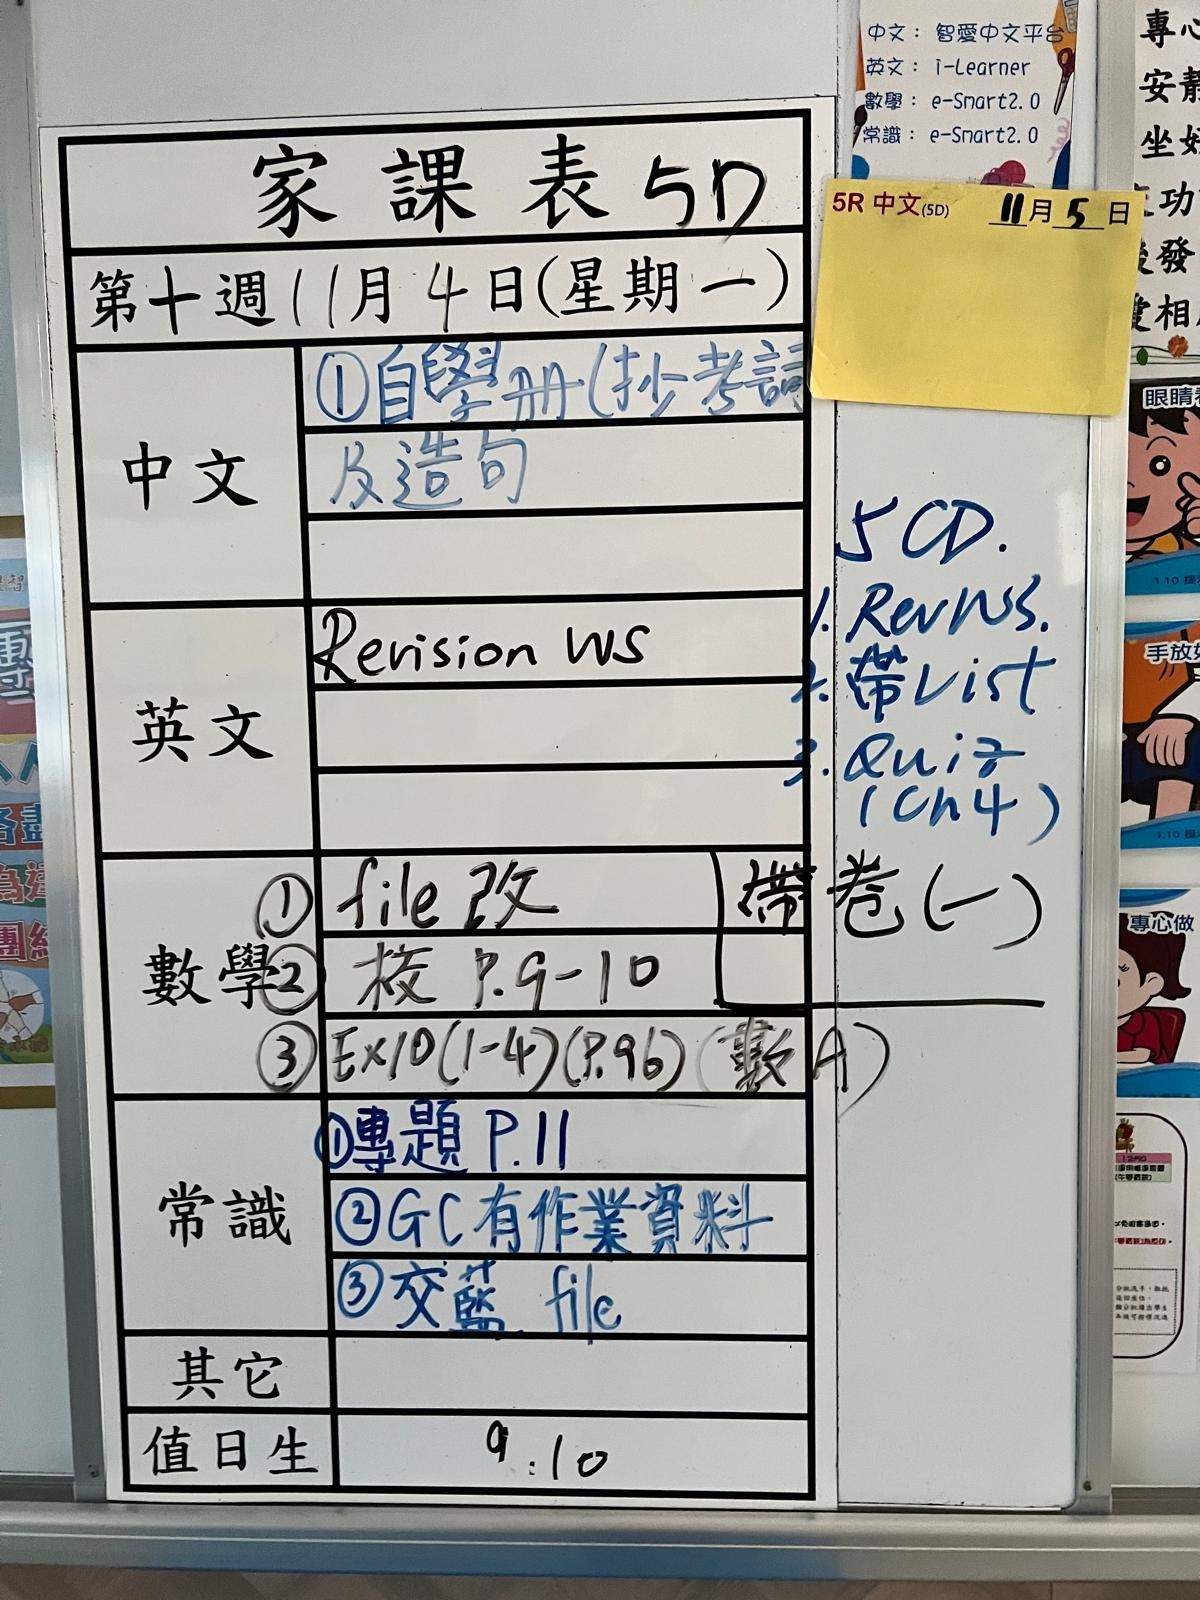 家課表 5D
第十週11月4日(星期一)
中文
①自學册(抄考詞
及造句
英文
Revision WS
數學
① file 改
② 校 P.9-10
③ Ex10(1-4)(P.96)(數A)
帶卷(一)
常識
①專題 P.11
②GC有作業資料
③交藍 file
其它
值日生
9.10
中文: 智愛中文平台
英文: i-Learner
數學: e-Smart2.0
常識: e-Smart2.0
5R 中文(5D) 11月5日
5CD.
1. Rev WS.
2. 帶List
3. Quiz
(Ch4)
專心
安靜
坐好
功
發
相
眼睛看
1.10
手放好
1.10
專心做